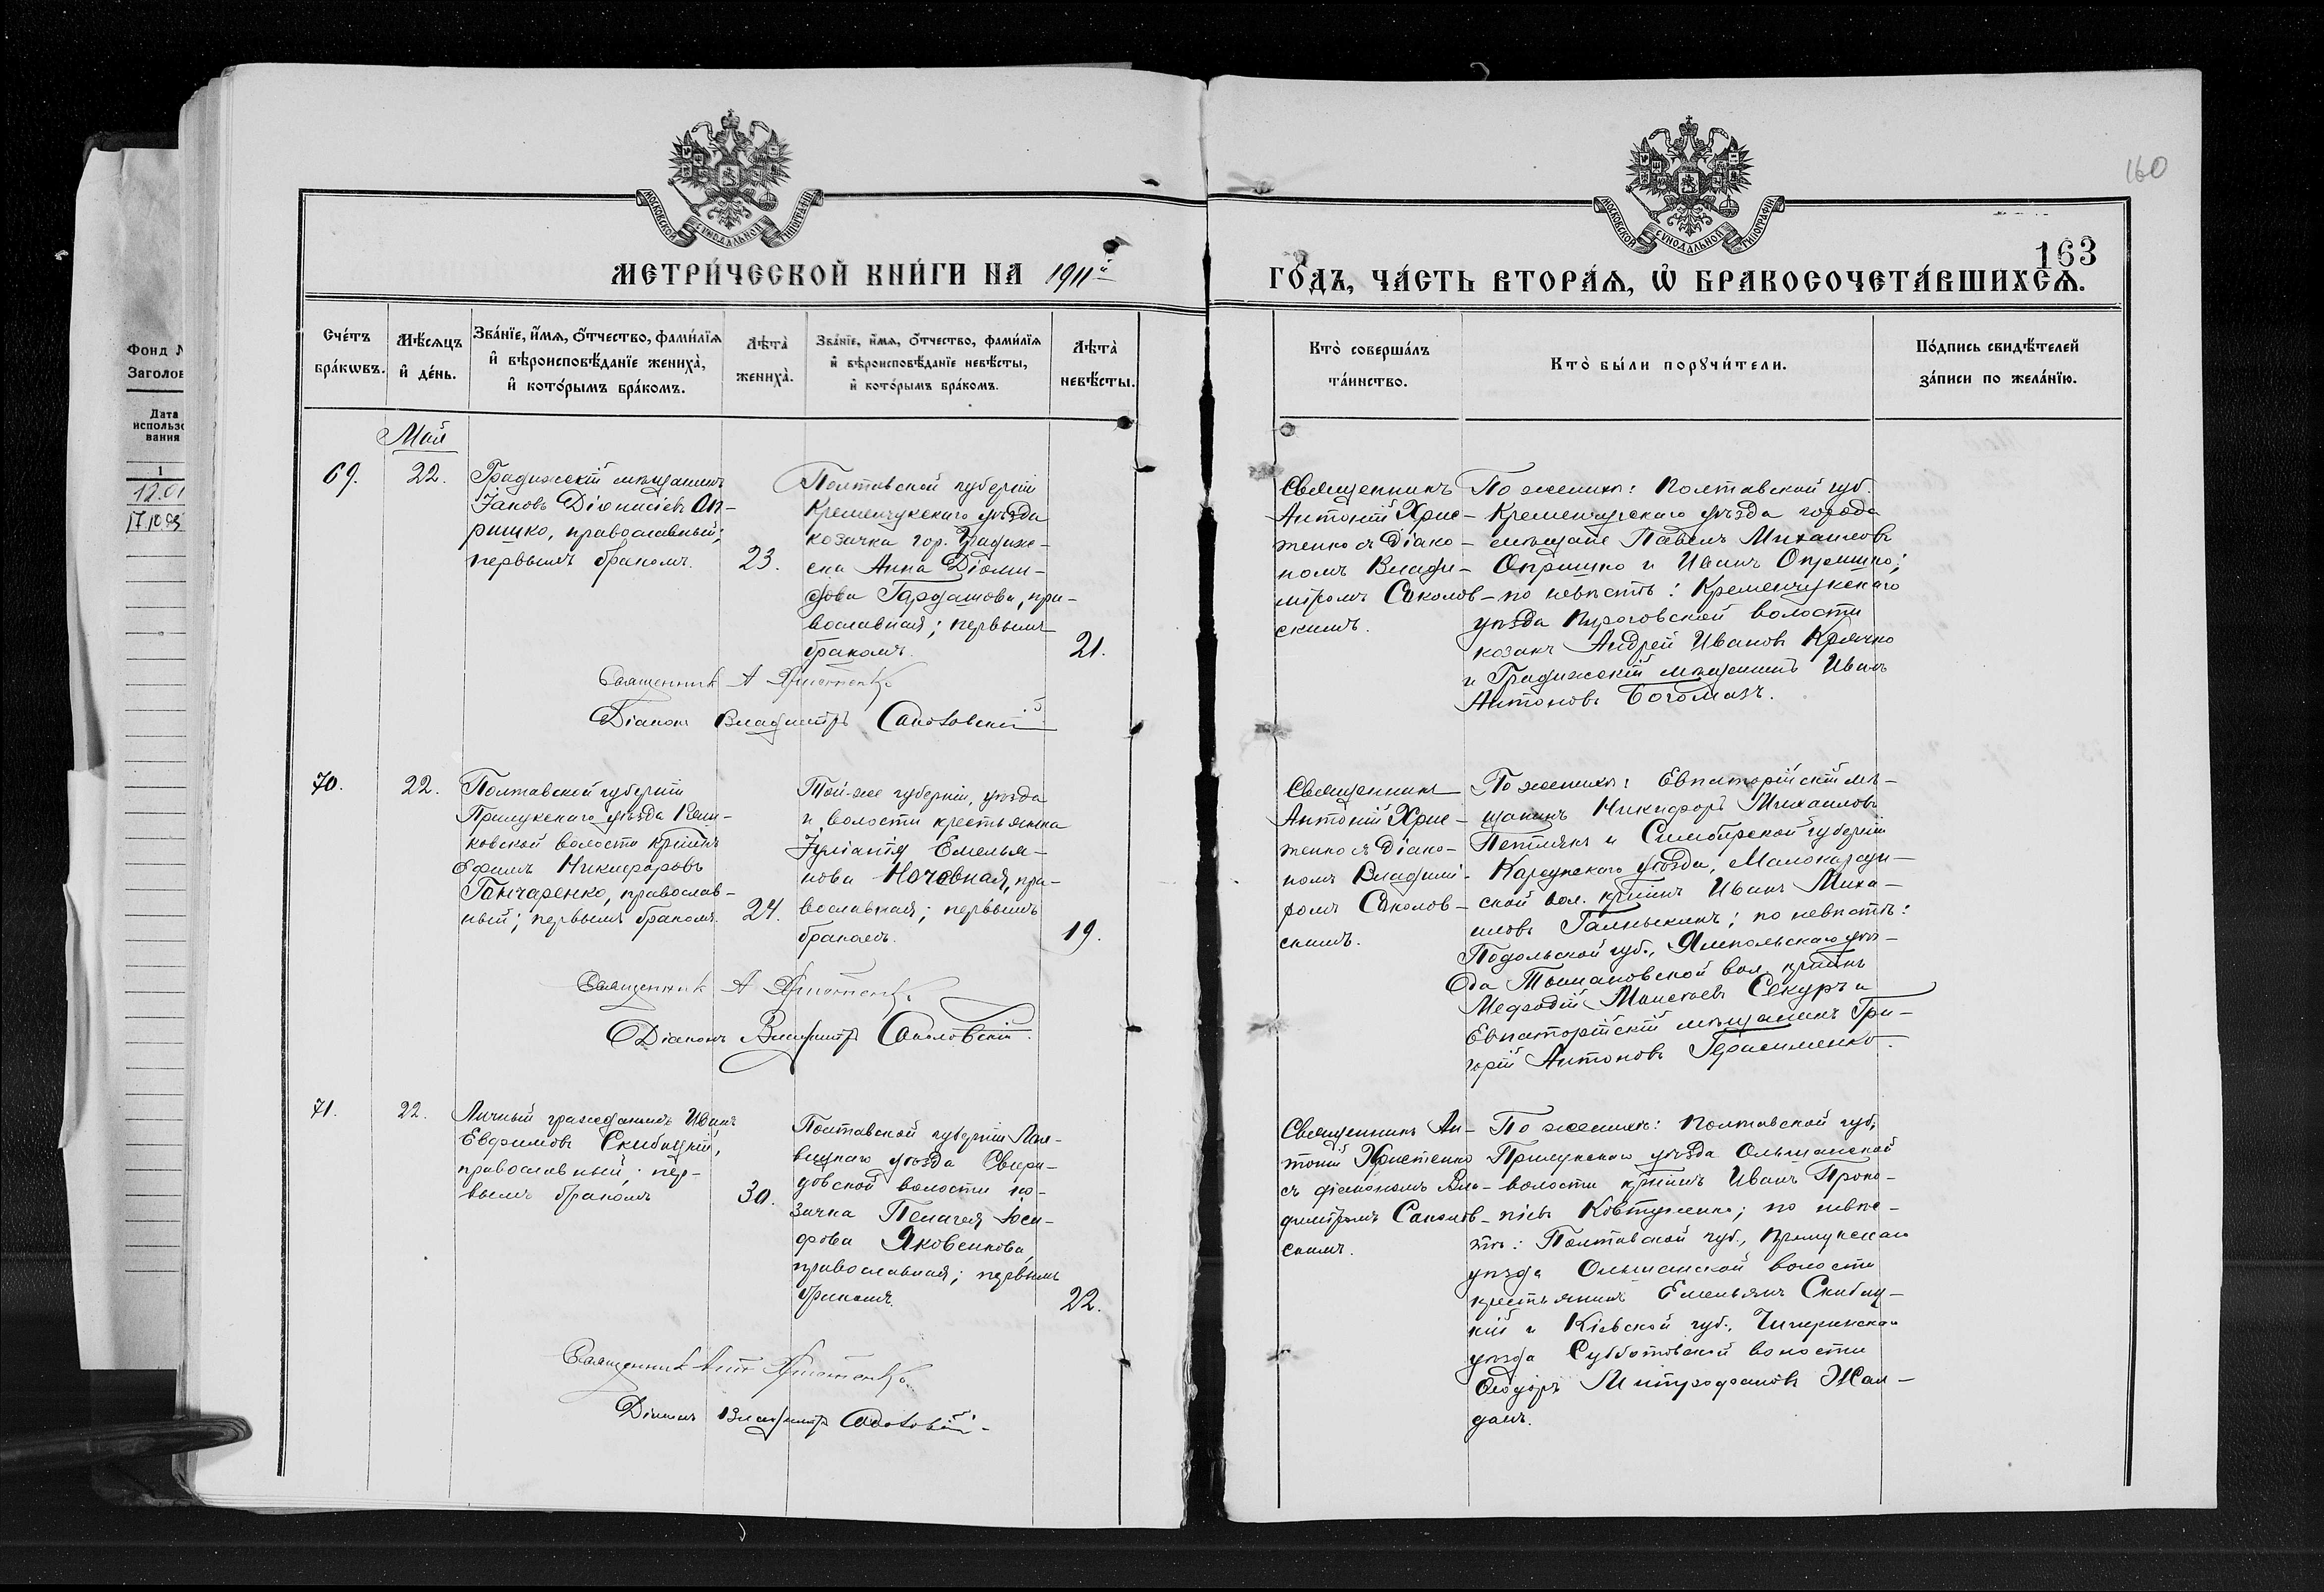 160
163
МОСКОВСКОЙ СѴНОДАЛЬНОЙ ТИПОГРАФІИ
МОСКОВСКОЙ СѴНОДАЛЬНОЙ ТИПОГРАФІИ
МЕТРИ́ЧЕСКОЙ КНИ́ГИ НА 1911й
ГО́ДЪ, ЧА́СТЬ ВТОРА́Ѧ, Ѡ҆ БРАКОСОЧЕТА́ВШИХСѦ.
Сче́тъ бра́кѡвъ.
Мѣ́сѧцъ и҆ де́нь.
Зва́нїе, и҆́мѧ, ѻ҆́тчество, фами́лїѧ и҆ вѣроисповѣ́данїе жениха̀, и҆ кото́рымъ бра́комъ.
Лѣта̀ жениха̀.
Зва́нїе, и҆́мѧ, ѻ҆́тчество, фами́лїѧ и҆ вѣроисповѣ́данїе невѣ́сты, и҆ кото́рымъ бра́комъ.
Лѣта̀ невѣ́сты.
Кто̀ соверша́лъ та́инство.
Кто̀ бы́ли порꙋчи́тели.
По́дпись свидѣ́телей за́писи по жела́нїю.
Фонд
Заголов
Дата
использо
вания
1
12.01
Май
69.
22.
Градижскій мѣщанинъ
Іаковъ Діонисіевъ Оп-
ришко, православный;
первымъ бракомъ.
23.
Полтавской губерніи
Кременчукскаго уѣзда
козачка гор. Градиж-
ска Анна Діоми-
дова Гардашова, пра-
вославная; первымъ
бракомъ.
21.
Священникъ А Христенко
Діаконъ Владиміръ Соколовскій
Священникъ
Антоній Хрис-
тенко съ діако-
номъ Влади-
міромъ Соколов-
скимъ.
По женихѣ: Полтавской губ.
Кременчугскаго уѣзда города
мѣщане Павелъ Михаиловъ
Опришко и Иванъ Опришко;
по невѣстѣ: Кременчукскаго
уѣзда Пироговской волости
козакъ Андрей Ивановъ Крячко
и Градижскій мѣщанинъ Иванъ
Антоновъ Богомазъ.
70.
22.
Полтавской губерніи
Прилукскаго уѣзда
ковской волости кр-нинъ
Ефимъ Никифоровъ
Гончаренко, православ-
ный; первымъ бракомъ.
24.
Той-же губерніи, уѣзда
и волости крестьянка
Іуліанія Емелья-
нова Ночовная, пра-
вославная; первымъ
бракомъ.
19.
Священникъ А Христенко
Діаконъ Владиміръ Соколовскій.
Священникъ
Антоній Хрис-
тенко съ діако-
номъ Владимі-
ромъ Соколов-
скимъ.
По женихѣ: Евпаторійскій мѣ-
щанинъ Никифоръ Михаиловъ
и Симбирской губерніи
Карсунскаго уѣзда,
ской вол. кр-нинъ Иванъ Миха-
иловъ; по невѣстѣ:
Подольской губ., Ямпольскаго уѣз-
да Томашовской вол. кр-нинъ
Мефодій Моисеевъ Секуръ и
Евпаторійскій мѣщанинъ Гри-
горій Антоновъ Герасименко.
71.
22.
Личный гражданинъ Иванъ
Евфимовъ Скибицкій,
православный; пер-
вымъ бракомъ
30.
Полтавской губерніи Лох-
вицкаго уѣзда Свири-
довской волости ко-
зачка Пелагея Іоси-
фова Яковенкова,
православная; первымъ
бракомъ.
22.
Священникъ Ант Христенко.
Діаконъ Владиміръ Соколовскій.
Священникъ Ан-
тоній Христенко
съ діакономъ Вла-
диміромъ Соколов-
скимъ.
По женихѣ: Полтавской губ.
Прилукскаго уѣзда Ольшанской
волости кр-нинъ Иванъ Проко-
піевъ Ковтуненко; по невѣс-
тѣ: Полтавской губ., Прилукскаго
уѣзда Ольшанской волости
крестьянинъ Емельянъ Скибиц-
кій и Кіевской губ., Чигиринскаго
уѣзда Субботовской волости
Ѳеодоръ Митрофановъ Жал-
данъ.